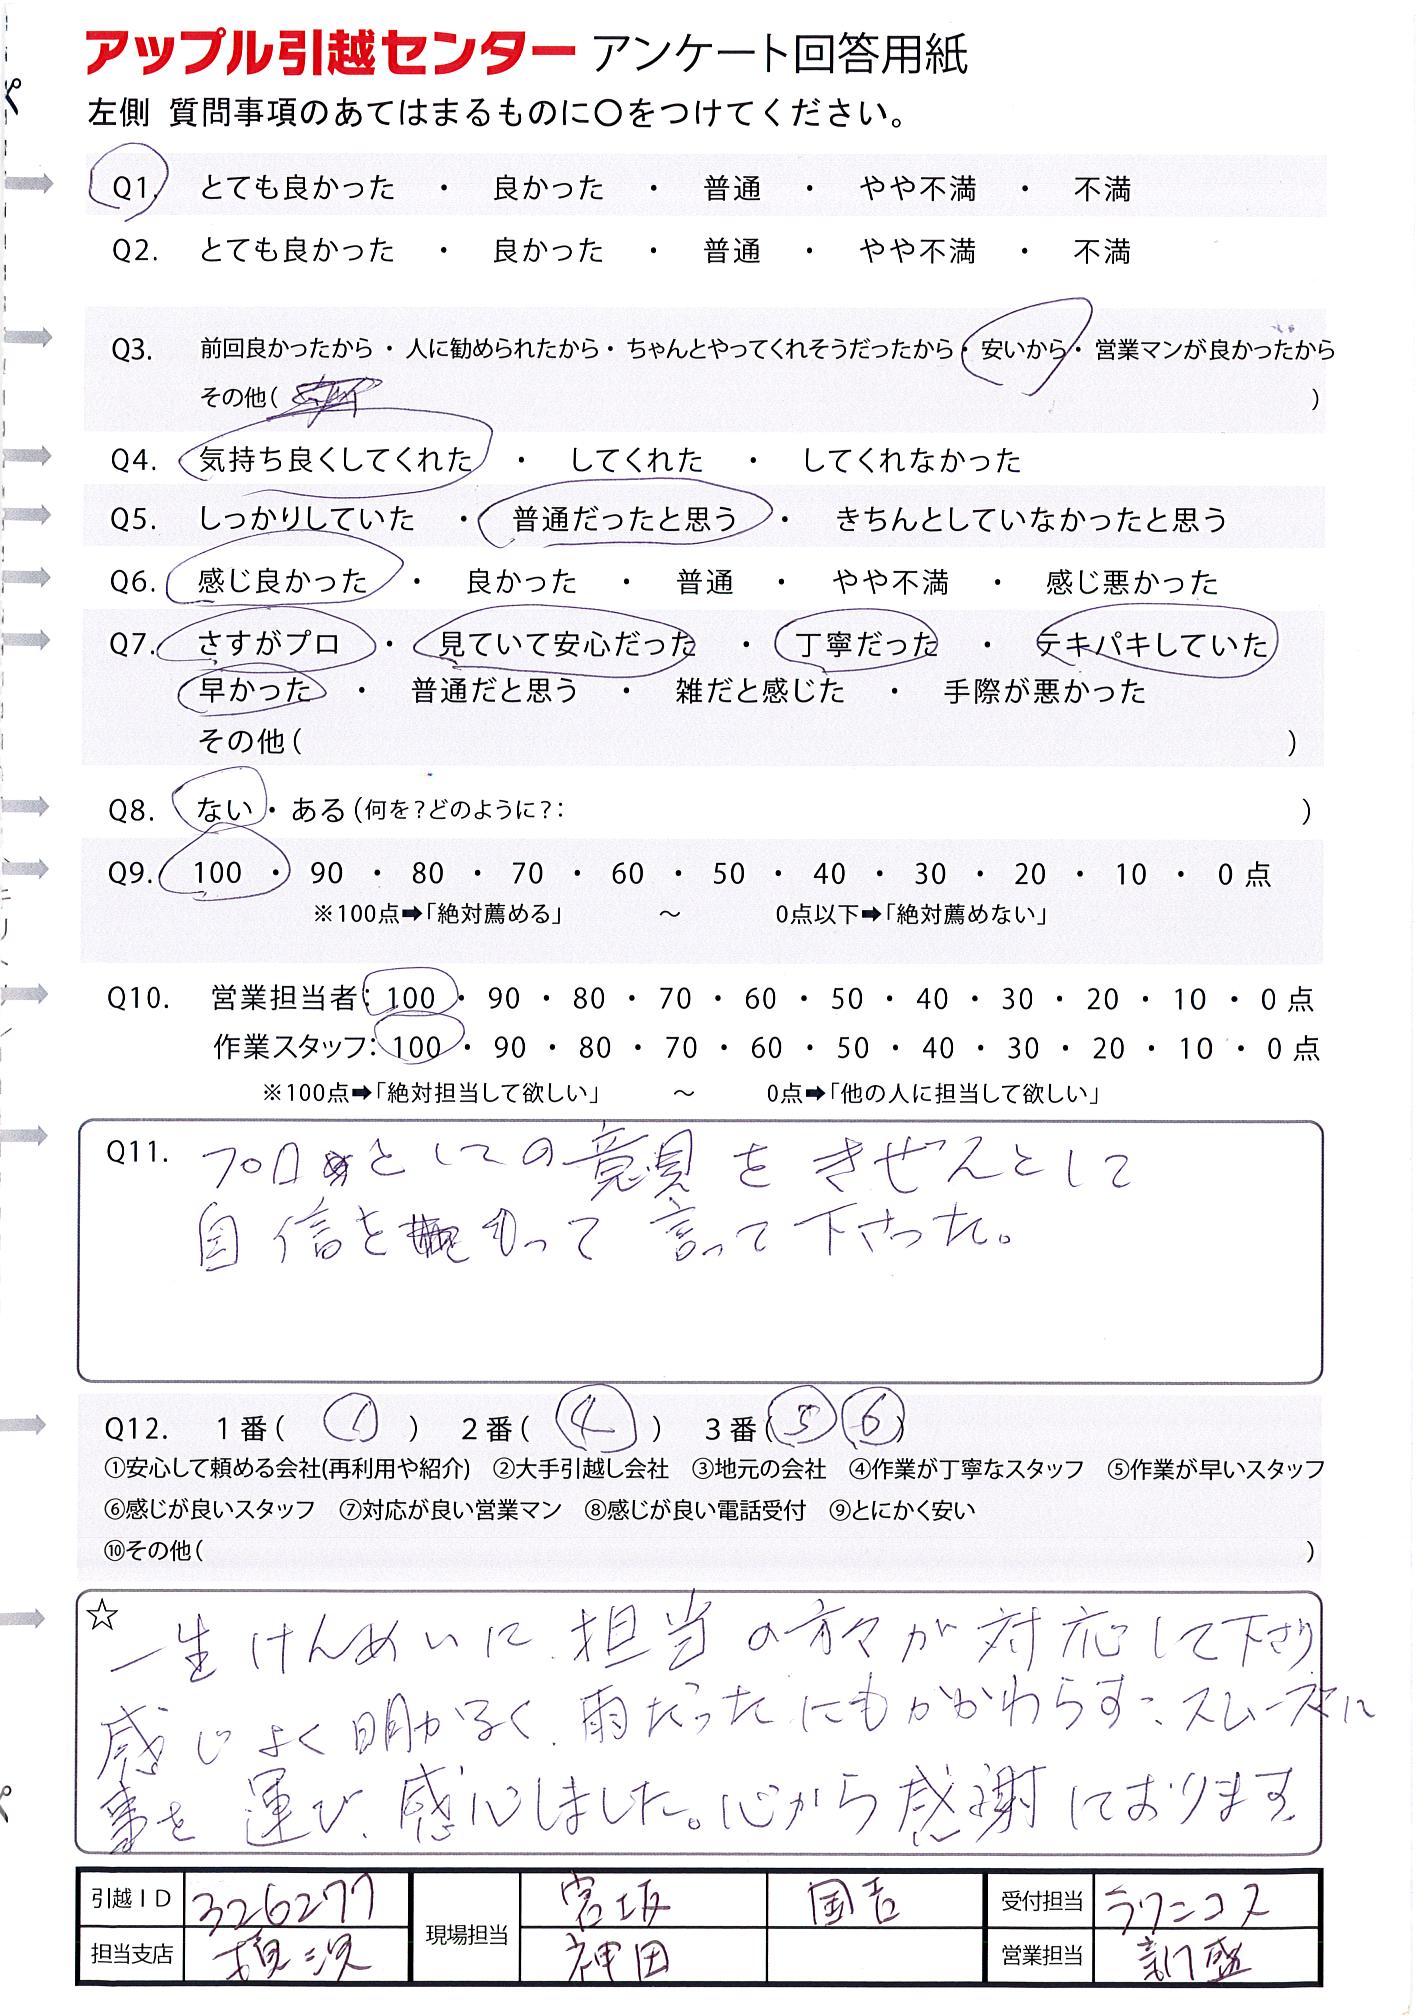 アップル引越センター アンケート回答用紙
左側 質問事項のあてはまるものに〇をつけてください。
Q1. とても良かった ・ 良かった ・ 普通 ・ やや不満 ・ 不満
Q2. とても良かった ・ 良かった ・ 普通 ・ やや不満 ・ 不満
Q3. 前回良かったから・人に勧められたから・ちゃんとやってくれそうだったから・安いから・営業マンが良かったから
その他( )
Q4. 気持ち良くしてくれた ・ してくれた ・ してくれなかった
Q5. しっかりしていた ・ 普通だったと思う ・ きちんとしていなかったと思う
Q6. 感じ良かった ・ 良かった ・ 普通 ・ やや不満 ・ 感じ悪かった
Q7. さすがプロ ・ 見ていて安心だった ・ 丁寧だった ・ テキパキしていた
早かった ・ 普通だと思う ・ 雑だと感じた ・ 手際が悪かった
その他( )
Q8. ない・ある(何を?どのように?: )
Q9. 100 ・ 90 ・ 80 ・ 70 ・ 60 ・ 50 ・ 40 ・ 30 ・ 20 ・ 10 ・ 0点
※100点➡「絶対薦める」 ～ 0点以下➡「絶対薦めない」
Q10. 営業担当者: 100 ・ 90 ・ 80 ・ 70 ・ 60 ・ 50 ・ 40 ・ 30 ・ 20 ・ 10 ・ 0点
作業スタッフ: 100 ・ 90 ・ 80 ・ 70 ・ 60 ・ 50 ・ 40 ・ 30 ・ 20 ・ 10 ・ 0点
※100点➡「絶対担当して欲しい」 ～ 0点➡「他の人に担当して欲しい」
Q11. プロとしての意見をきぜんとして
自信をもって言って下さった。
Q12. 1番( ① ) 2番( ④ ) 3番( ⑤ ⑥ )
①安心して頼める会社(再利用や紹介) ②大手引越し会社 ③地元の会社 ④作業が丁寧なスタッフ ⑤作業が早いスタッフ
⑥感じが良いスタッフ ⑦対応が良い営業マン ⑧感じが良い電話受付 ⑨とにかく安い
⑩その他( )
☆一生けんめいに、担当の方々が対応して下さり
感じよく明かるく、雨だったにもかかわらず、スムーズに
事を運び、感心しました。心から感謝しております。
引越ID 326277 現場担当 宮坂 国吉 受付担当 ラワンコス
担当支店 横浜 神田 営業担当 新盛